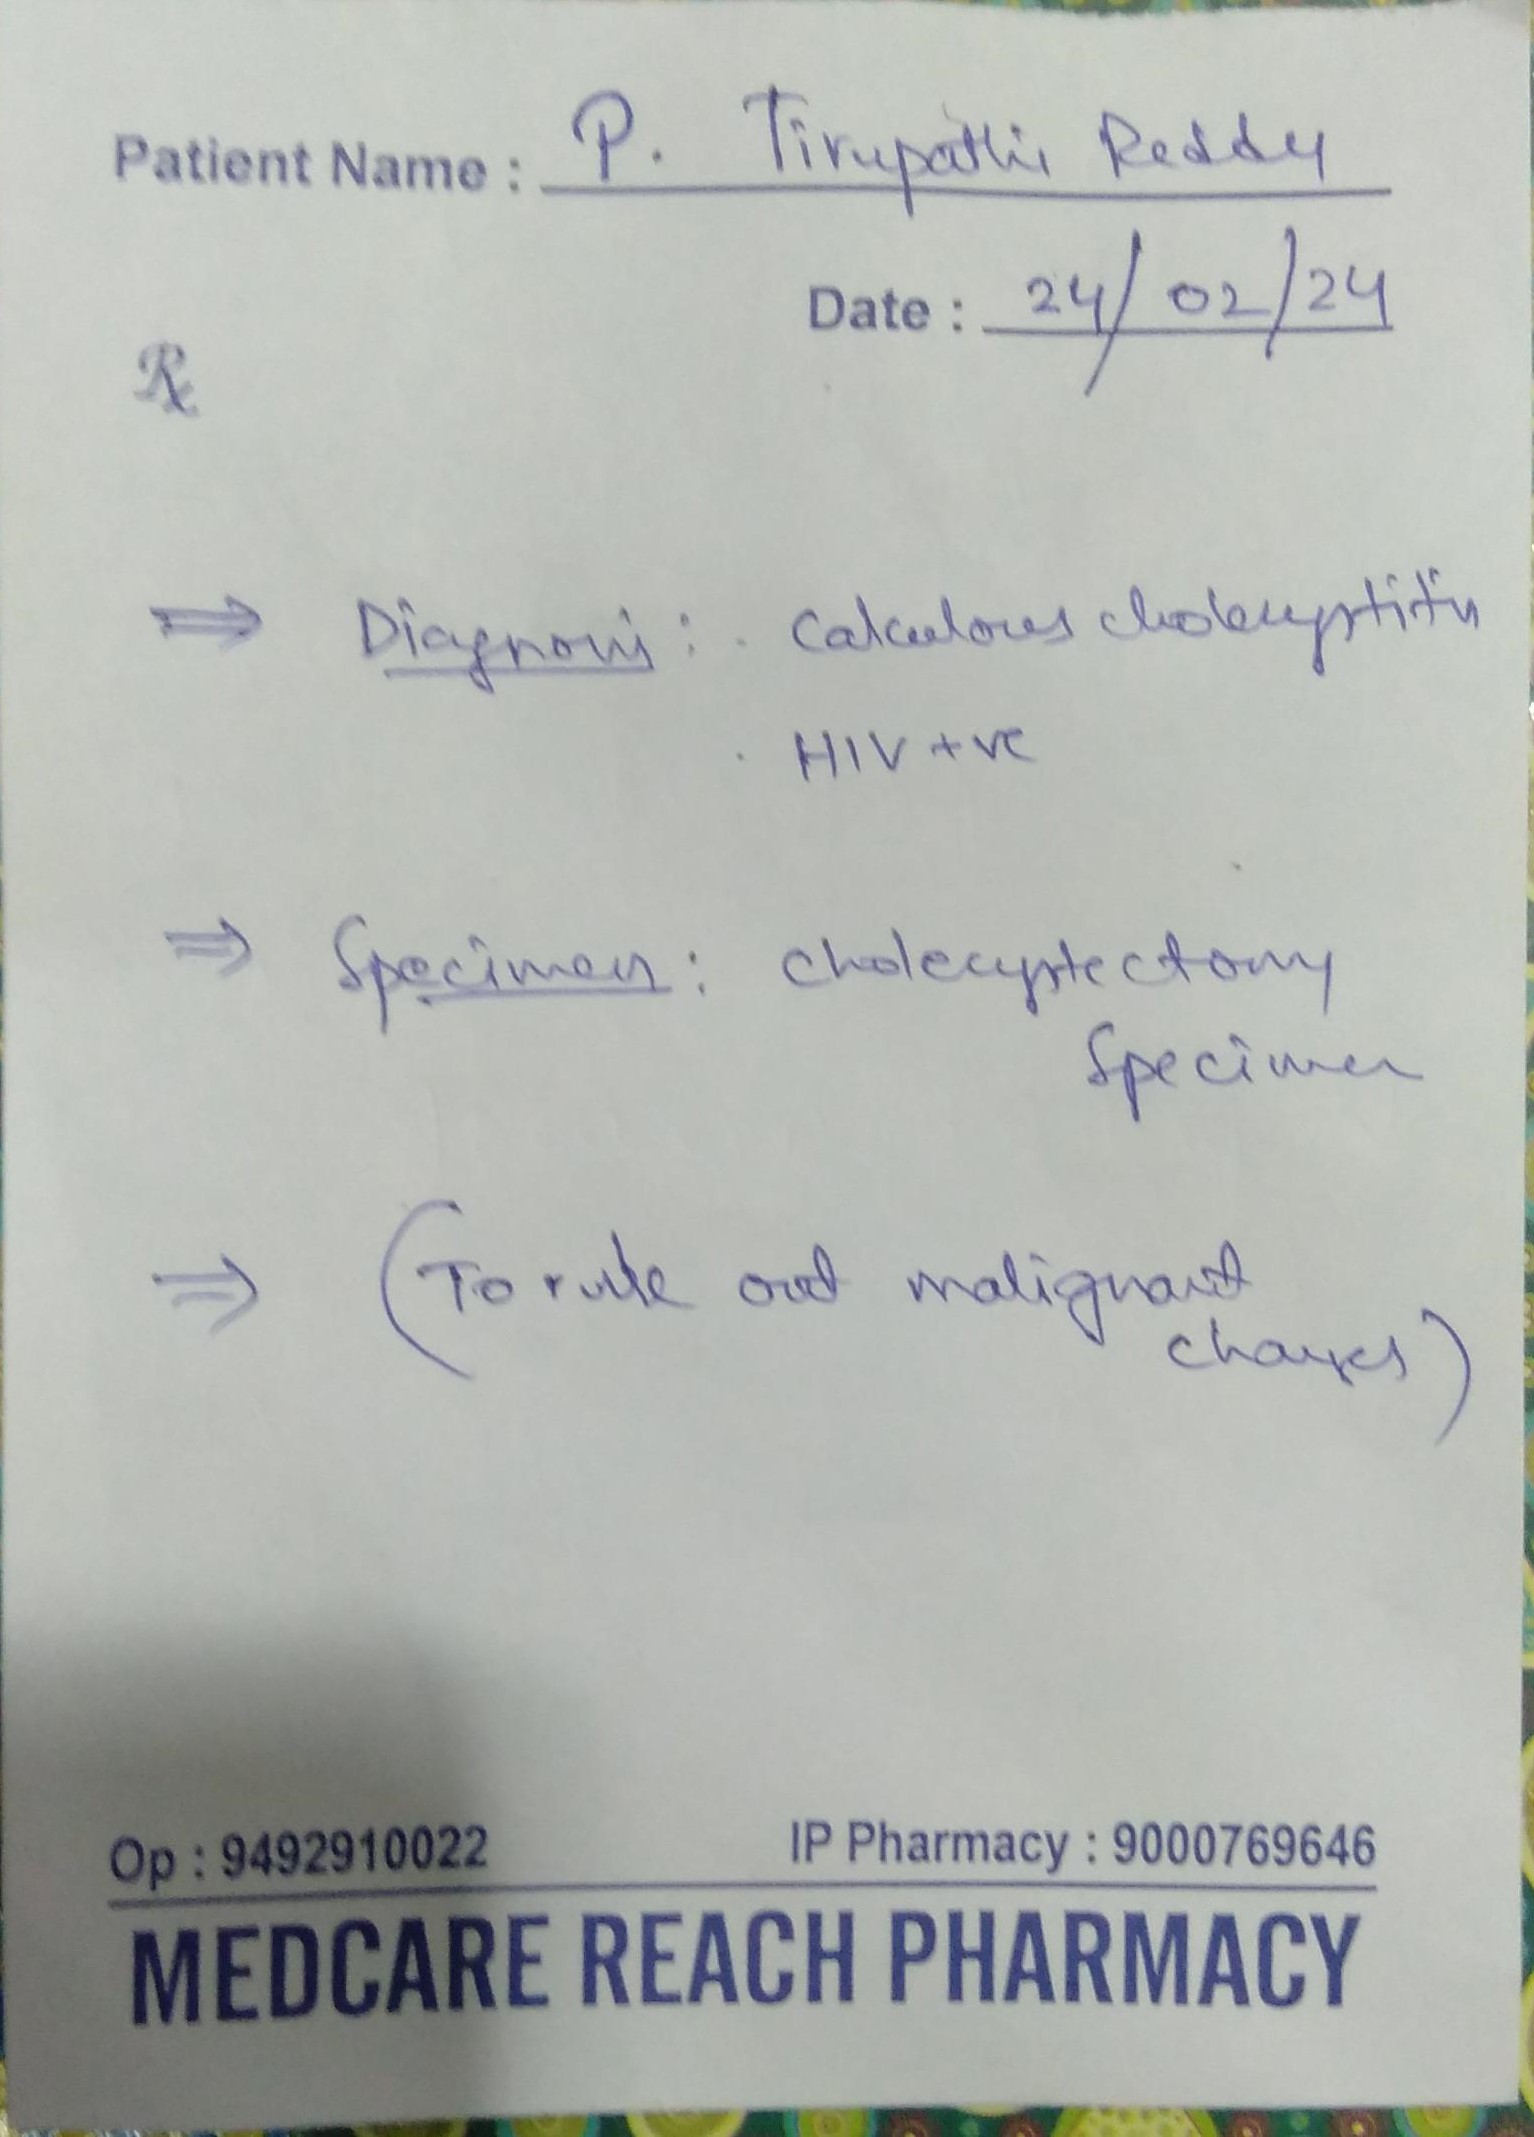 Patient Name : P. Tirupathi Reddy
Date : 24/02/24
℞
⇒ Diagnosis : . Calculous cholecystitis
. HIV +ve
⇒ Specimen : cholecystectomy
Specimen
⇒ (To rule out malignant
changes)
Op : 9492910022 IP Pharmacy : 9000769646
MEDCARE REACH PHARMACY